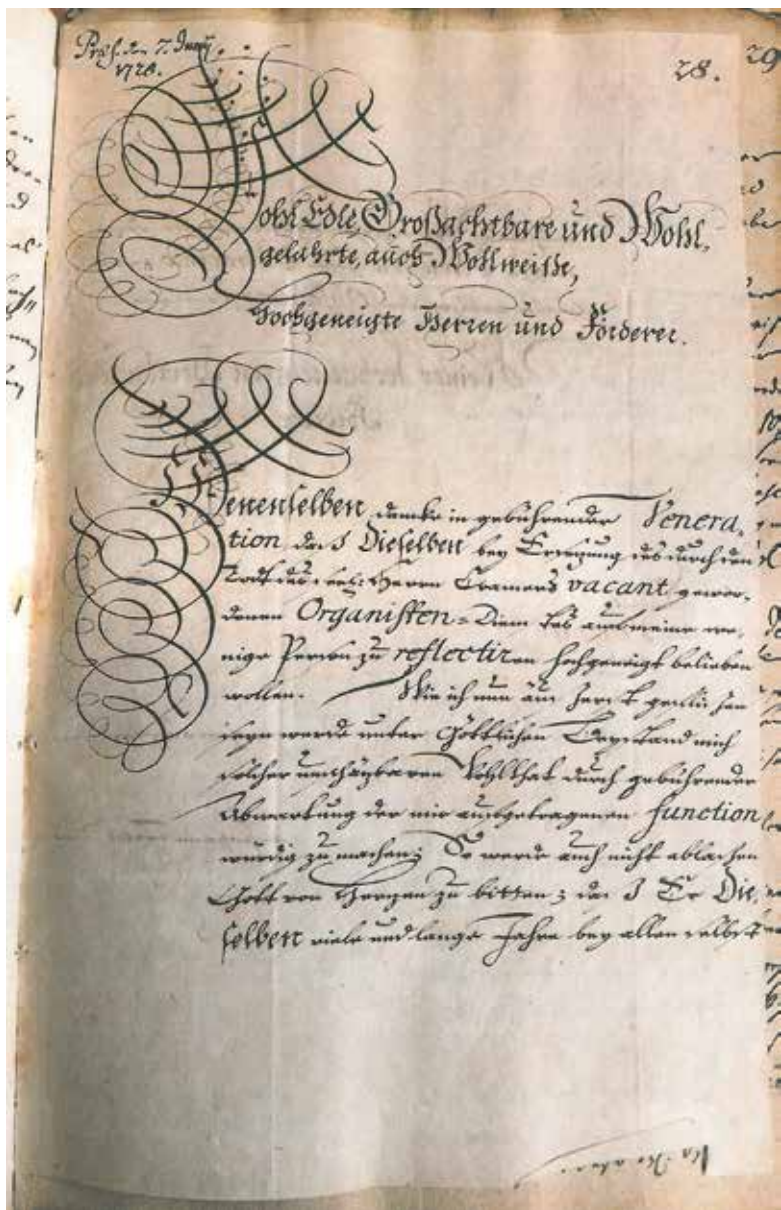 Præs. den 7. Junij
1728.
28.
29
Wohl Edle, Großachtbare und Wohl,
gelahrte, auch Wollweiße,
Hochgeneigte Herren und Förderer.
Denenselben dancke in gebührender Venera,
tion daß Dieselben bey Ersezung des durch den
Todt des seel: Herrn Cramers vacant gewor,
denen Organisten-Dienstes auf meine we,
nige Person zu reflectiren hochgeneigt belieben
wollen. Wie ich nun
seyn werde unter Göttlichen Beystand mich
solcher unschäzbaren Wohlthat durch gebührender
Abwartung der mir aufgetragenen function
würdig zu machen; So werde auch nicht ablaßen
Gott von Herzen zu bitten; daß Er Die,
selben viele und lange Jahre bey allen selbst